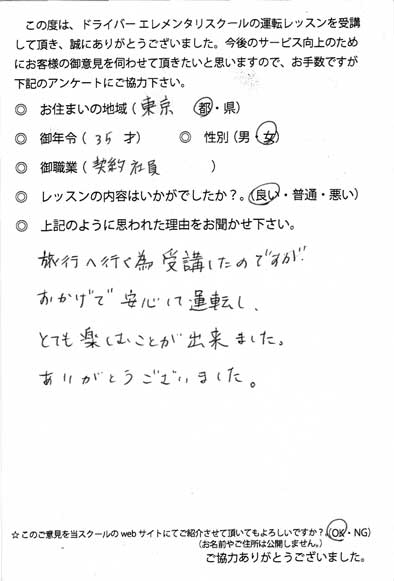 この度は、ドライバーエレメンタリスクールの運転レッスンを受講
して頂き、誠にありがとうございました。今後のサービス向上のため
にお客様の御意見を伺わせて頂きたいと思いますので、お手数ですが
下記のアンケートにご協力下さい。
◎ お住まいの地域（東京 都・県）
◎ 御年令（35 才） ◎ 性別（男・女）
◎ 御職業（契約社員 ）
◎ レッスンの内容はいかがでしたか？。（良い・普通・悪い）
◎ 上記のように思われた理由をお聞かせ下さい。
旅行へ行く為受講したのですが
おかげで安心して運転し、
とても楽しむことが出来ました。
ありがとうございました。
☆このご意見を当スクールのwebサイトにてご紹介させて頂いてもよろしいですか？（OK・NG）
（お名前やご住所は公開しません。）
ご協力ありがとうございました。